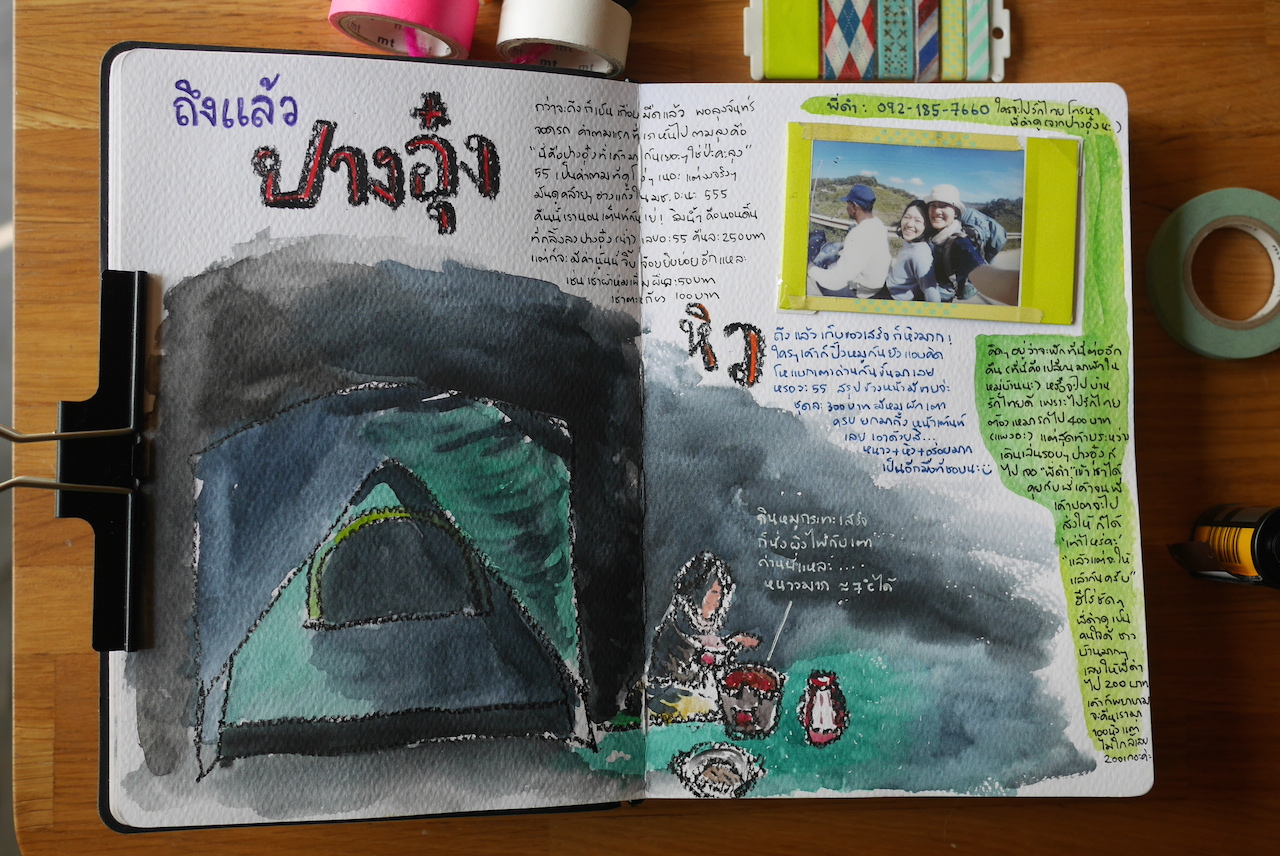 mt
mt
ถึงแล้ว
ปางอุ๋ง
กว่าจะถึงก็เป็นเกือบมืดแล้ว พอลุงจันทร์
จอดรถ คำถามแรกที่เราหันไปถามลุงคือ
"นี่คือปางอุ๋งที่เค้ามากันเยอะๆใช่ป่ะคะลุง"
55 เป็นคำถามที่ดูโง่ๆเนอะ แต่มันจริงๆ
มันดูคล้ายๆอ่างแก้วในมช.อะนะ 555
คืนนี้เรานอนเต็นท์กัน
คืนละ 250บาท
เช่น เช่าผ้าห่มเพิ่มผืนละ50บาท
เช่าตะเกียง 100บาท
พี่ดำ : 092-185-7660 ใครจะไปรักไทยโทรหา
พี่ดำดู (จากปางอุ๋งนะ:)
หิว
ถึงแล้วเก็บของเสร็จก็หิวมาก!
ใครๆเค้าก็ปิ้งหมูกัน
หรอวะ 55 สรุปข้างหน้ามีขายจ้ะ
ชุดละ 300บาท มีหมู ผัก เตา
ครบ ยกมาถึงหน้าเต็นท์
เลย เอาด้วยสิ...
หนาว+หิว+อร่อยมาก
เป็นอีกมื้อที่ชอบนะ
กินหมูกระทะเสร็จ
ก็นั่งผิงไฟกับเตา
ถ่านนี่แหละ ....
หนาวมาก ≈7°c ได้
คิดๆอยู่ว่าจะพักที่นี่ต่ออีก
คืน (ที่นี่คือเปลี่ยนมาพักใน
หมู่บ้านนะ) หรือจะไปบ้าน
รักไทยดี เพราะไปรักไทย
ต้องเหมารถไป 400บาท
(แพงอะ) แต่สุดท้ายระหว่าง
เดินเล่นรอบๆปางอุ๋งก็
ไปเจอ "พี่ดำ"
คุยกับพี่เค้าจนพี่
เค้าบอกจะไป
ส่งให้ก็ได้
"เท่าไหร่คะ"
"แล้วแต่จะให้
แล้วกันครับ"
ฮีโร่ชัดๆ
พี่ดำดูเป็น
คนใจดี ชาว
บ้านมากๆ
เลยให้พี่ดำ
ไป 200บาท
เค้าก็พยายาม
จะคืนเรามา
100นึง แต่
ไม่ใกล้เลย
200เถอะค่ะ